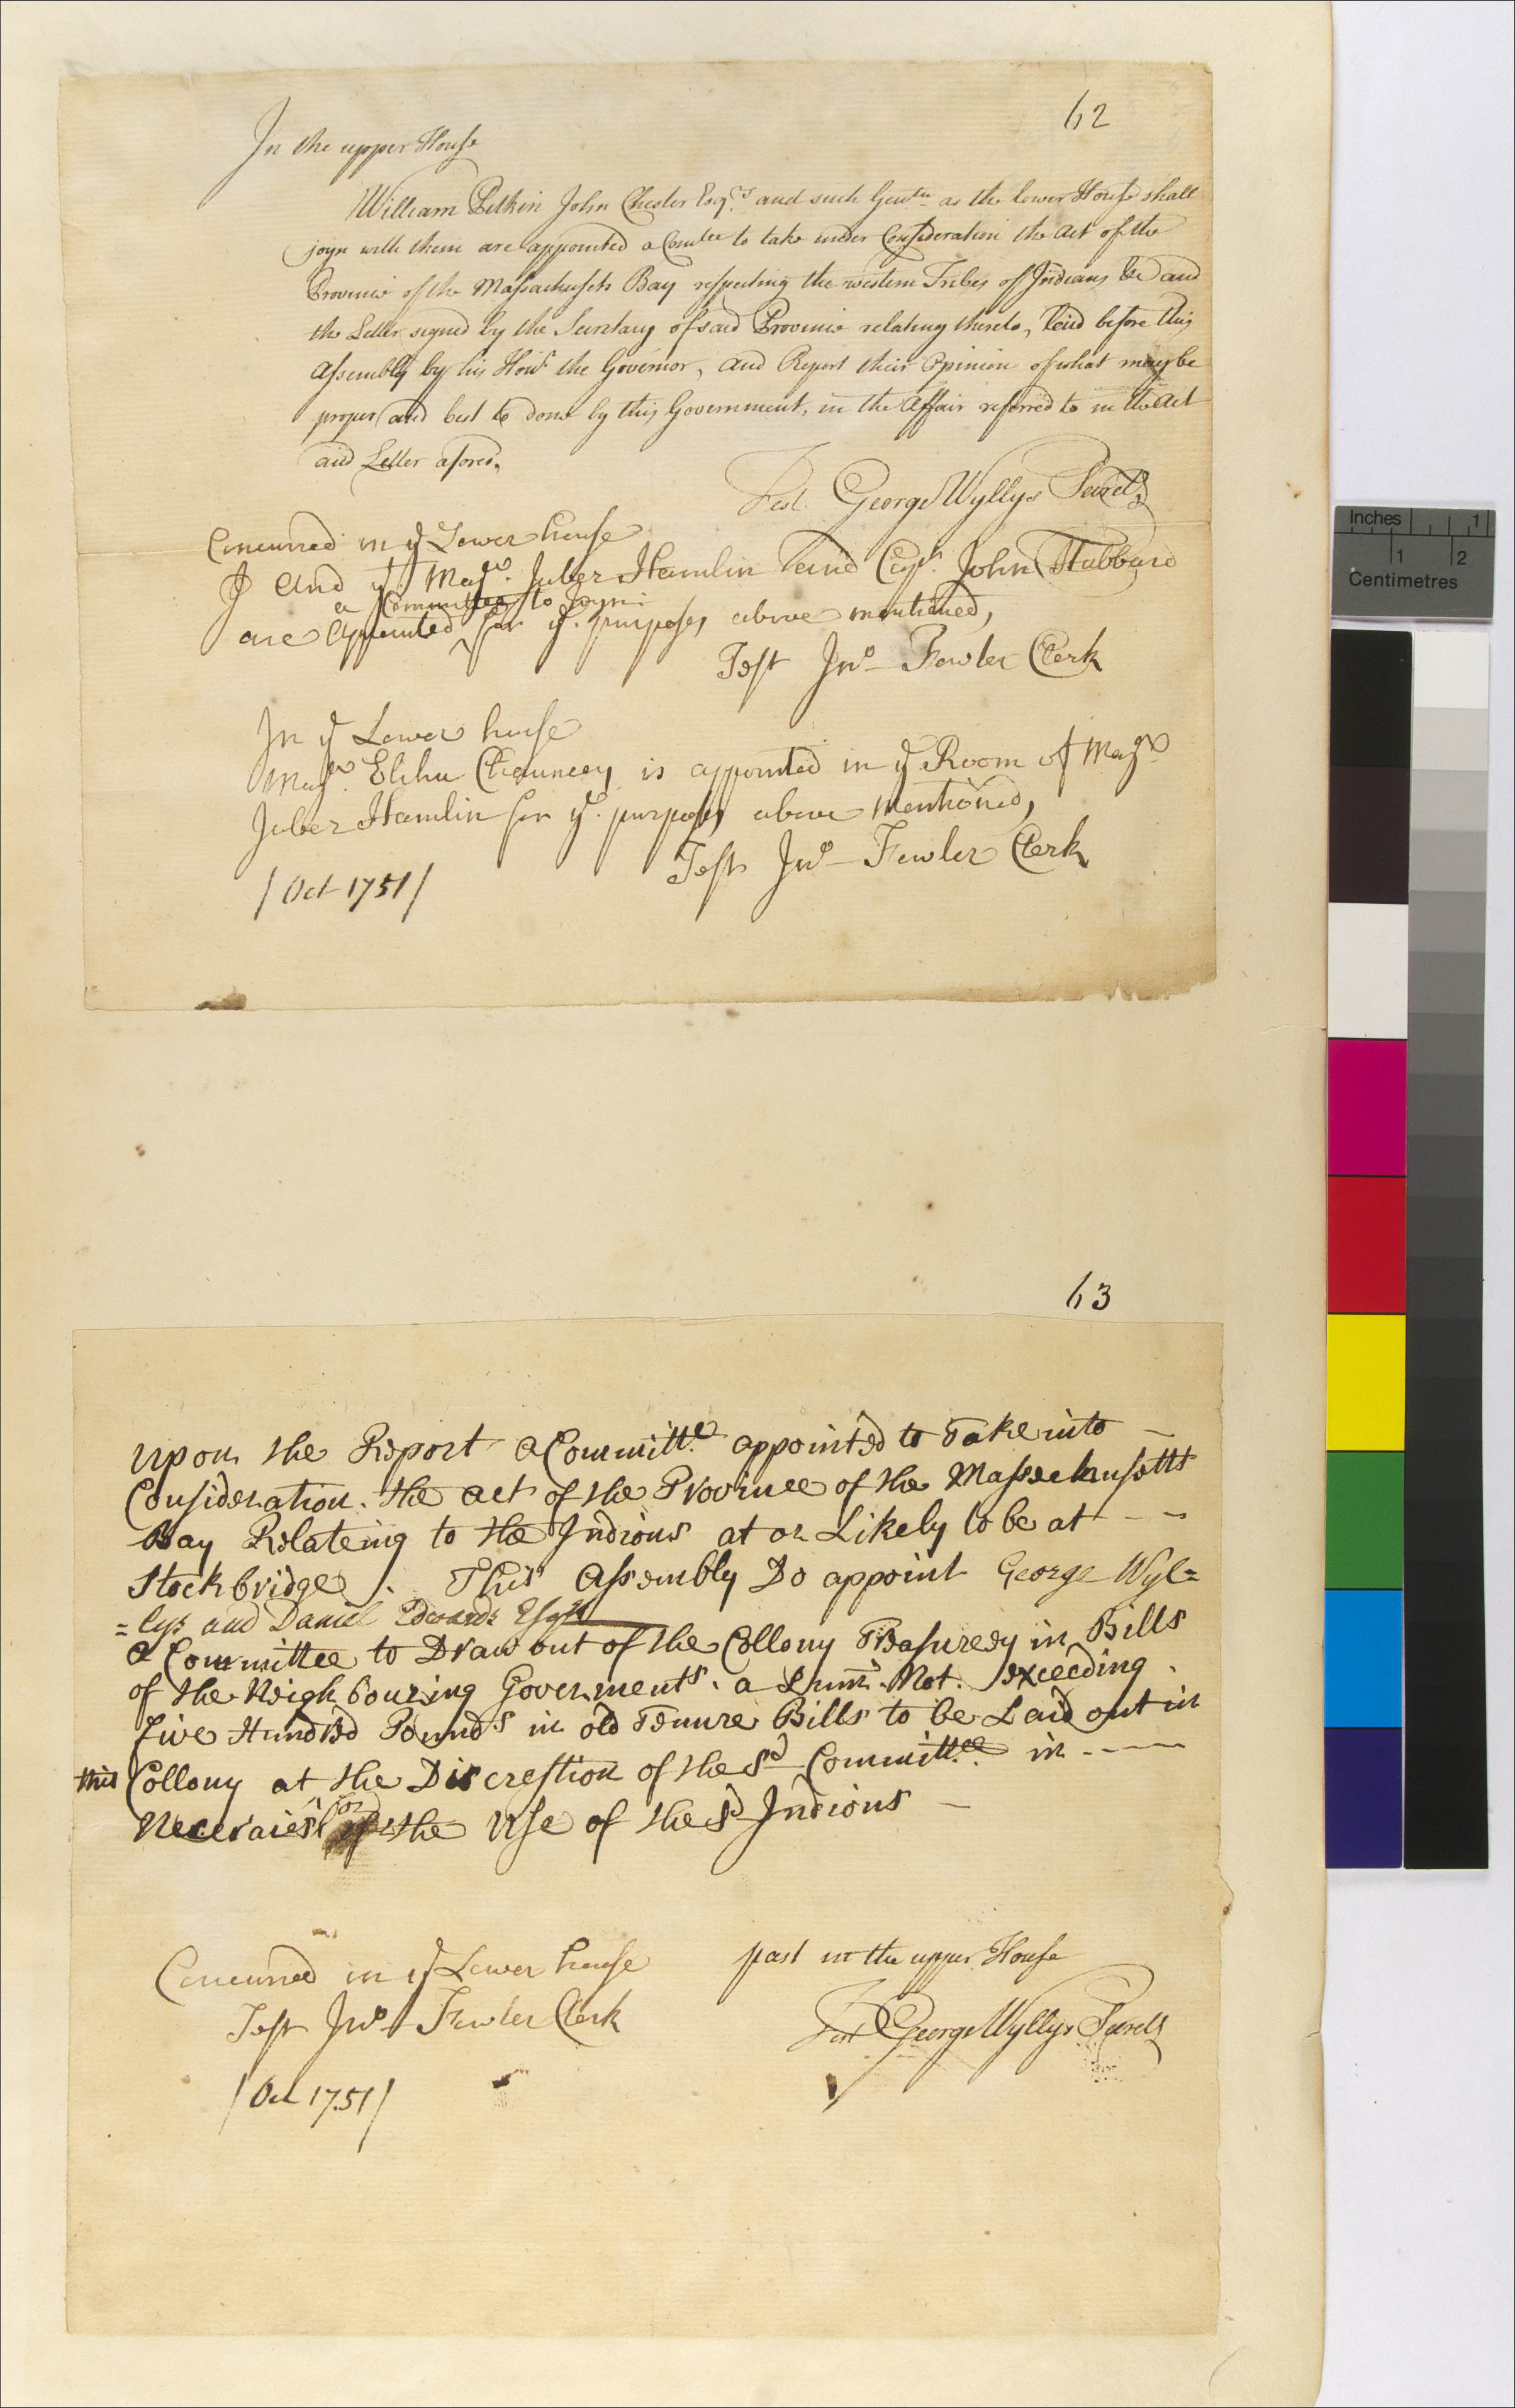 62
In the upper House
William Pitkin John Chester Esqrs and such Gentn as the lower House shall
joyn with them are appointed a Comtee to take under Consideration the Act of the
Province of the Massachusets Bay respecting the western Tribes of Indians &c and
the Letter signed by the Secretary of said Province relating thereto, laid before this
Assembly by his Honr the Governor, and Report their Opinion of what may be
proper and best to done by this Government, in the Affair referred to in the Act
and Letter afores.
Test. George Wyllys Secrety
Concurred in ye Lower house
And yt Majr. Jabez Hamlin and Capt. John Hubbard
a Committee to Joyn
are appointed for ye. purposes above mentioned,
Test Jno Fowler Clerk
In ye Lower house
Majr. Elihu Chauncey is appointed in ye Room of Majr
Jabez Hamlin for ye. purposes above Mentioned,
Test Jno Fowler Clerk
/ Oct 1751 /
63
Upon the Report a Committe appointed to Take into
Consideration the act of the Province of the Massachusetts
Bay Relateing to the Indions at or Likely to be at
Stockbridge. This Assembly Do appoint George Wyl=
=lys and Daniel Edwards Esqrs
a Committee to Draw out of the Collony Treasurey in Bills
of the Neighbouring Goverments. a Summ Not. exceeding
Five Hundred Pounds in old Tenure Bills to be Laid out in
this Collony at the Discrestion of the sd Committee in
Neceraies for the Use of the sd Indions
Concurred in ye Lower house
Test Jno Fowler Clerk
/ Oct 1751 /
past in the upper House
Test George Wyllys Secrety